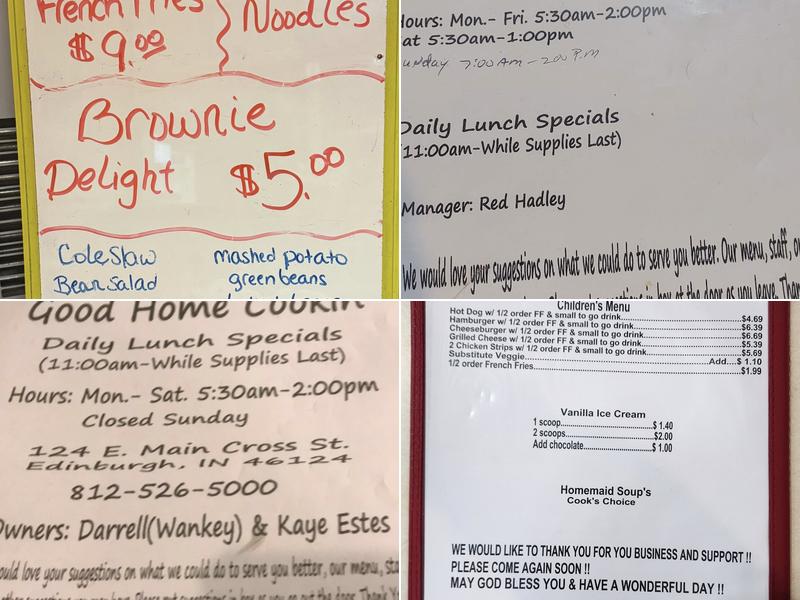 French Fries
Noodles
$9.00
Brownie
Delight $5.00
Coleslaw
mashed potato
Bean Salad
green beans
Hours: Mon.- Fri. 5:30am-2:00pm
at 5:30am-1:00pm
unday 7:00 AM - 2:00 P.M
Daily Lunch Specials
(11:00am-While Supplies Last)
Manager: Red Hadley
We would love your suggestions on what we could do to serve you better. Our menu, staff, o
box at the door as you leave. Than
Good Home Cookin
Daily Lunch Specials
(11:00am-While Supplies Last)
Hours: Mon.- Sat. 5:30am-2:00pm
Closed Sunday
124 E. Main Cross St.
Edinburgh, IN 46124
812-526-5000
Owners: Darrell(Wankey) & Kaye Estes
ould love your suggestions on what we could do to serve you better, our menu, sta
Children's Menu
Hot Dog w/ 1/2 order FF & small to go drink...$4.69
Hamburger w/ 1/2 order FF & small to go drink...$6.39
Cheeseburger w/ 1/2 order FF & small to go drink...$6.69
Grilled Cheese w/ 1/2 order FF & small to go drink...$5.39
2 Chicken Strips w/ 1/2 order FF & small to go drink...$5.69
Substitute Veggie...Add...$ 1.10
1/2 order French Fries...$1.99
Vanilla Ice Cream
1 scoop...$ 1.40
2 scoops...$2.00
Add chocolate...$ 1.00
Homemaid Soup's
Cook's Choice
WE WOULD LIKE TO THANK YOU FOR YOU BUSINESS AND SUPPORT !!
PLEASE COME AGAIN SOON !!
MAY GOD BLESS YOU & HAVE A WONDERFUL DAY !!